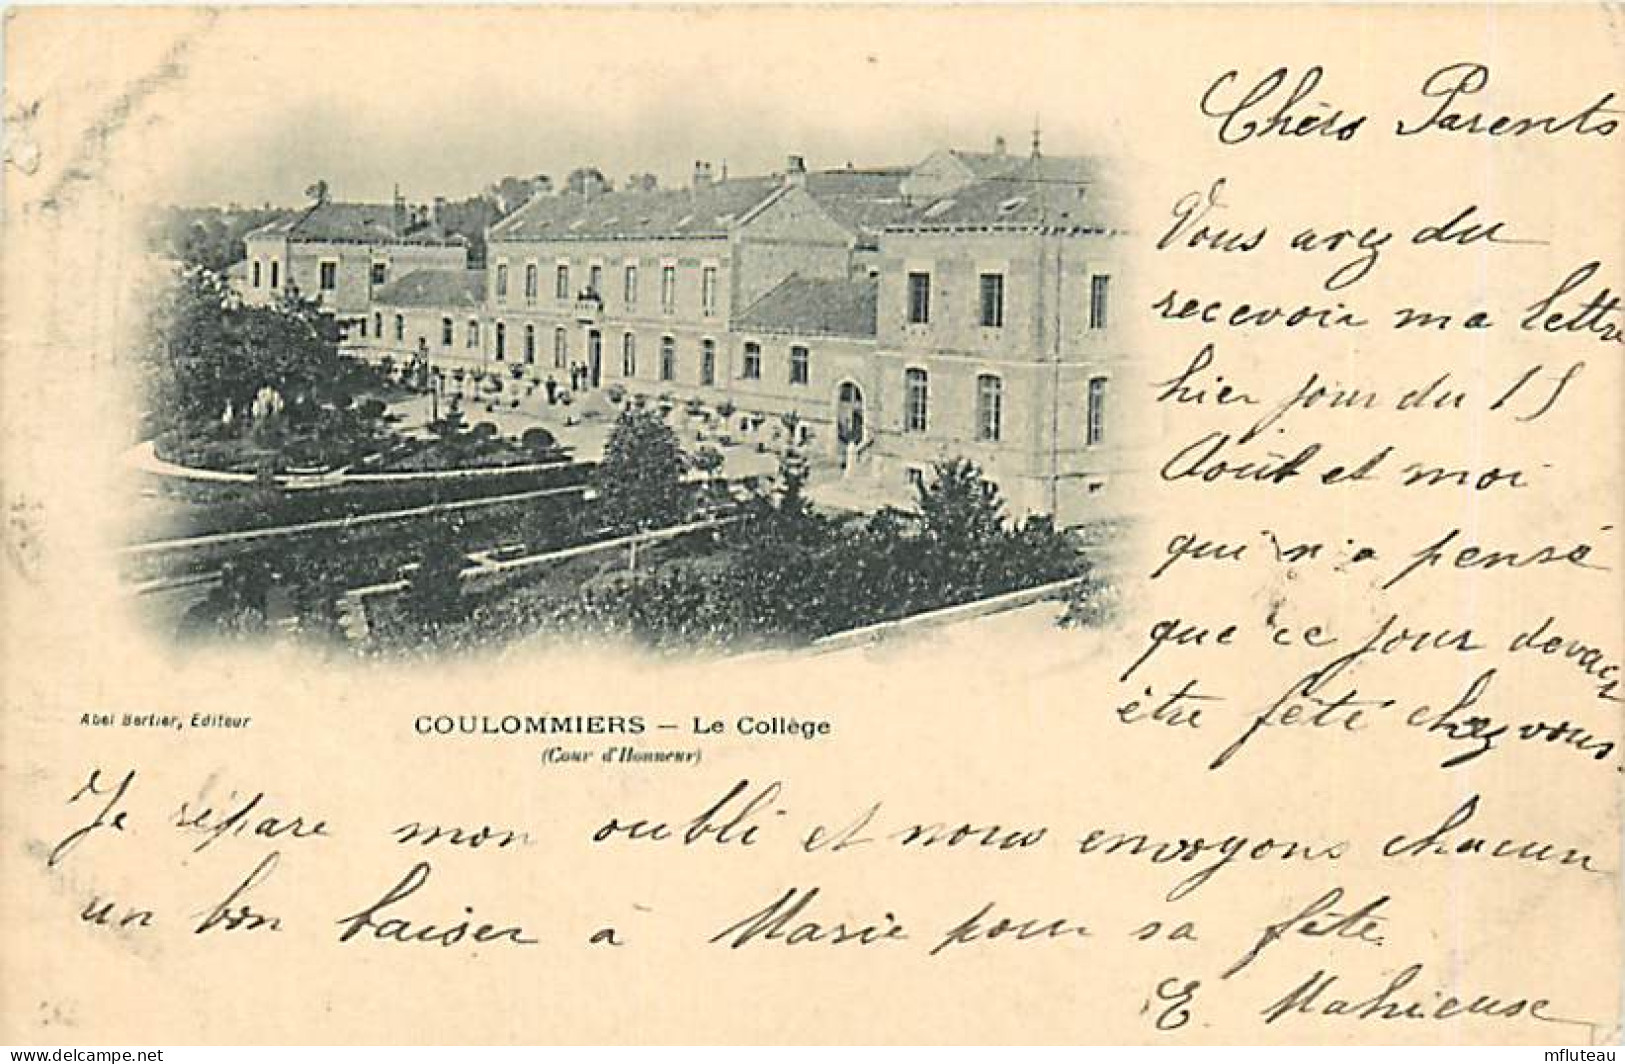 Chers Parents
Vous avez du
recevoir ma lettre
hier jour du 15
Août et moi
qui n'a pensé
que ce jour devait
être fêté chez vous.
Abel Bertier, Editeur
COULOMMIERS — Le Collège
(Cour d'Honneur)
Je répare mon oubli et nous envoyons chacun
un bon baiser à Marie pour sa fête.
E. Mahieuse
www.delcampe.net
mfluteau